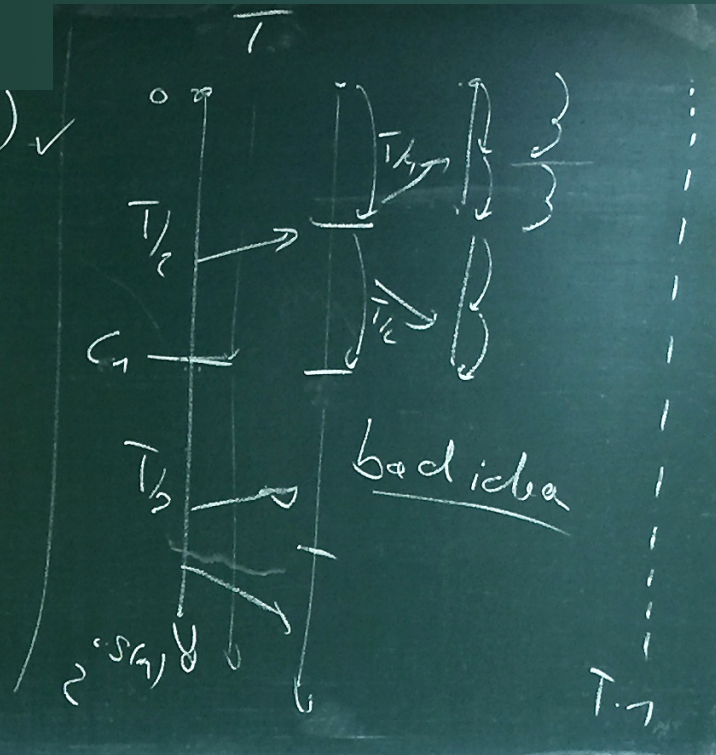 T
0
T/2
T/4
3
3
T/2
C1
T/2
bad idea
2^c·S(n)
T·1